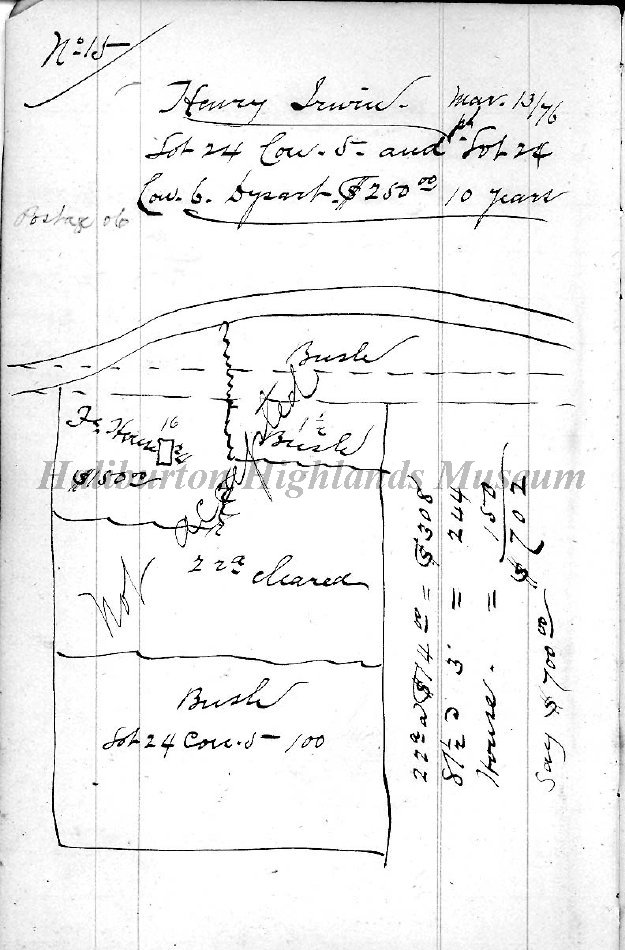 No. 15
Henry Irwin. Mar. 13/76
Lot 24 Con. 5 and pt Lot 24
Con. 6. Dysart. $250.00 10 years
Postage 06
Bush
Fr House 16
1½
Bush
$150.00
Haliburton Highlands Museum
Not accepted
22a cleared
Bush
Lot 24 Con. 5 - 100
22a a $14.00 = $308
81½ a 3 = 244
House. = 150
$702
Say $700.00